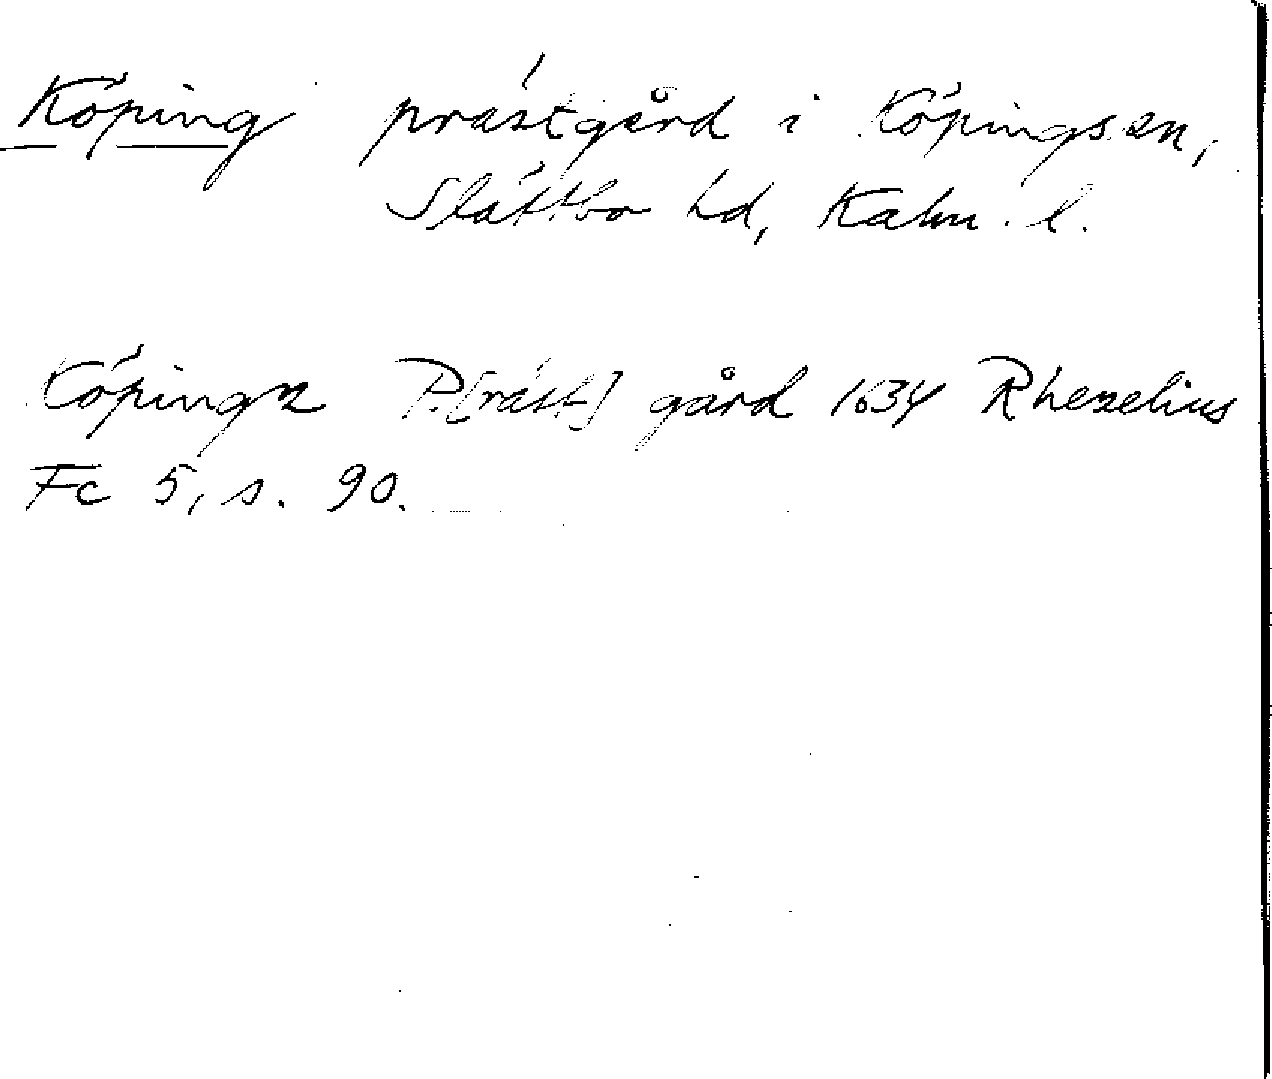 Köping prästgård i Köpings sn,
Slättbo hd, Kalm. l.
Köpingz P.[räst] gård 1634 Rhezelius
Fc 5, s. 90.